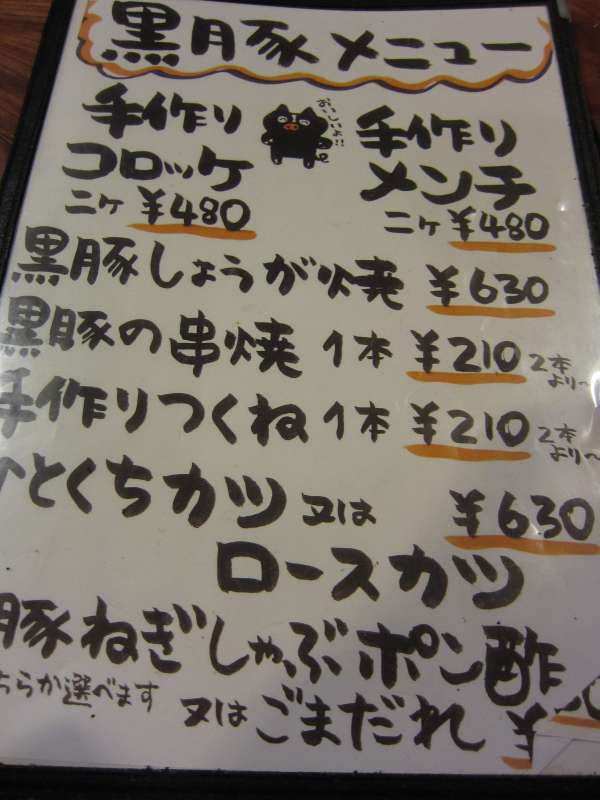 黒豚メニュー
おいしいよ!!
手作り
コロッケ
二ヶ ¥480
手作り
メンチ
二ヶ ¥480
黒豚しょうが焼 ¥630
黒豚の串焼 1本 ¥210 2本より〜
手作りつくね 1本 ¥210 2本より〜
ひとくちカツ 又は ¥630
ロースカツ
豚ねぎしゃぶポン酢
ちらか選べます 又はごまだれ ¥